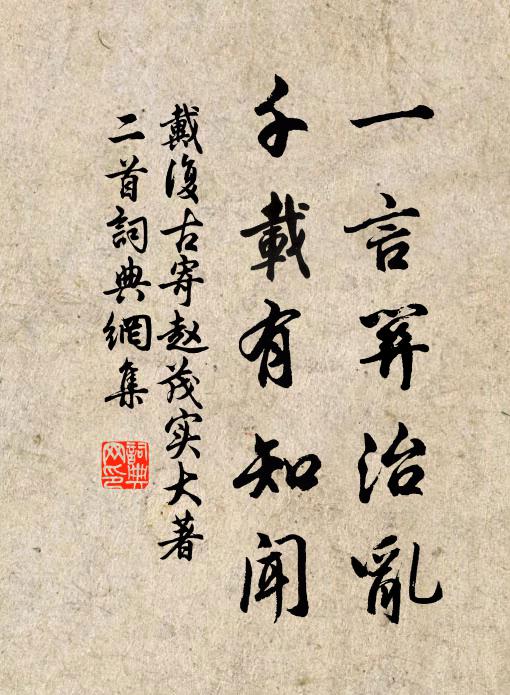 一言关治亂
千載有知聞
戴復古寄赵茂实大著
二首詞典網集
詞典網印